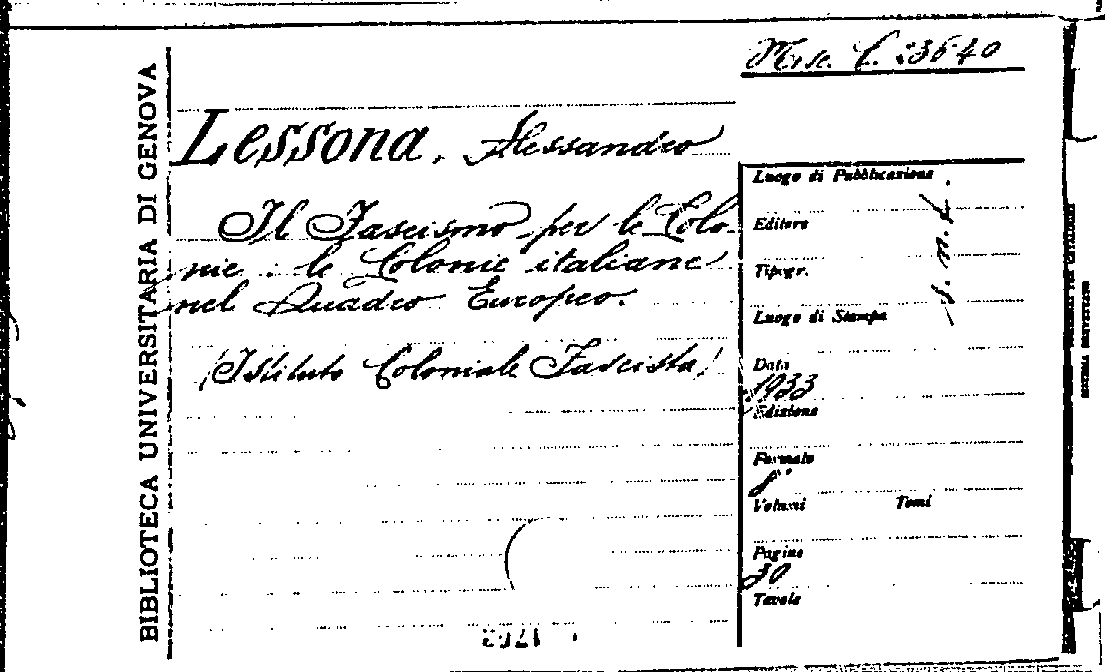 Misc. C. 3640
BIBLIOTECA UNIVERSITARIA DI GENOVA
Lessona, Alessandro
Il Fascismo per le Colo-
nie : le Colonie italiane
nel Quadro Europeo.
(Istituto Coloniale Fascista)
Luogo di Pubblicazione
Editore
Tipogr.
Luogo di Stampa
Data
1933
Edizione
Formato
8°
Volumi Tomi
Pagine
30
Tavole